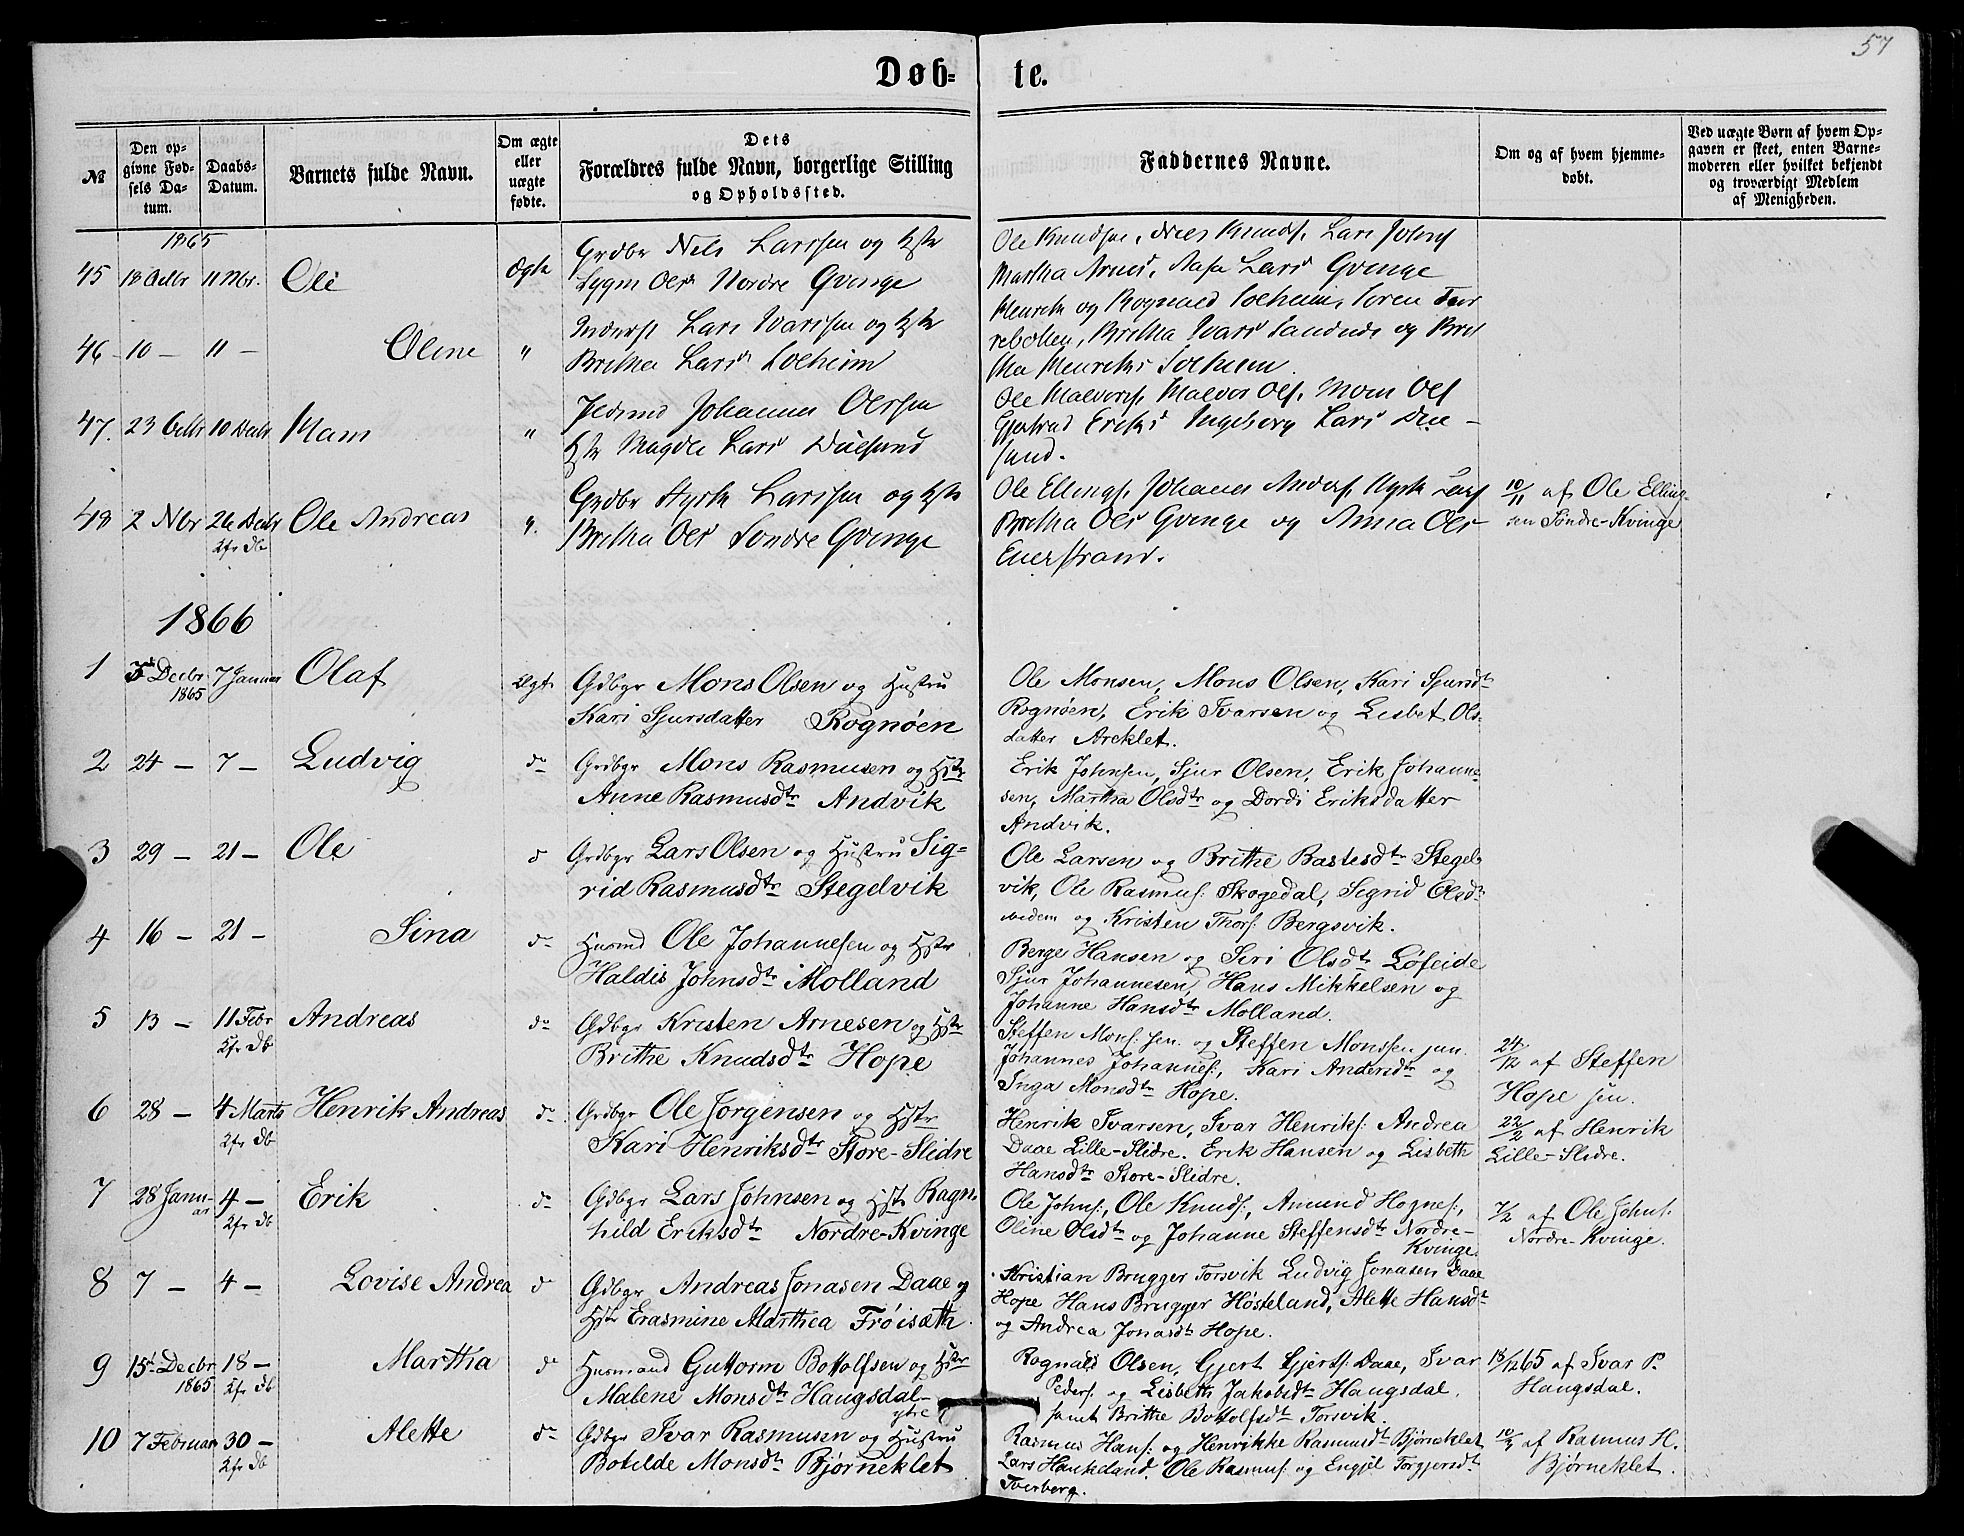 57
Døb- te.
№
Den op-
givne Fød-
sels Da-
tum.
Daabs-
Datum.
Barnets fulde Navn.
Om ægte
eller
uægte
fødte.
Dets
Forældres fulde Navn, borgerlige Stilling
og Opholdssted.
Faddernes Navne.
Om og af hvem hjemme-
døbt.
Ved uægte Børn af hvem Op-
gaven er skeet, enten Barne-
moderen eller hvilket bekjendt
og troværdigt Medlem
af Menigheden.
1865
45 Ole
Grdbr Nels Larssen og Hstr
Nordre Qvinge
Ole Knudsen, Lars
Martha Lars Qvinge
46 10 — 11 — Oline "
Lars Ivarssen og Hstr
Brithe Lars Solheim
og Rognald Solheim,
Britha Ivars og Brit
Solheim
47. 23 10 "
Johannes Olssen
Hstr Magdli Lars Duesund
Ole Ols.
Eriks Ingeborg Lars Due-
sund.
48 2 Nbr 26 Decbr Ole Andreas "
Kfr db
Grdbr Styrk Larssen og Hstr
Britha Ols Søndre Qvinge
Ole Ellings. Johannes Anders. Styrk Lars
Britha Ols Qvinge og Anna Ols
10/11 af Ole Elling-
sen Søndre-Kvinge
1866
1 3die Decbr 7 Januar Olaf Ægt.
1865
Gdbgr Mons Olsen og Hustru
Kari Sjursdatter Rognøen
Ole Monsen, Mons Olsen, Kari Sjursdtr
Rognøen, Erik Ivarsen og Lisbet Ols-
datter Areklet.
2 24 — 7 — Ludvig do
Grdbgr Mons Rasmusen og Hstr
Anne Rasmusdtr Andvik
Erik Johnsen, Sjur Olsen, Erik Johanne-
sen, Martha Olsdtr og Dordi Eriksdatter
Andvik.
3 29 — 21 — Ole d
Grdbgr Lars Olsen og Hustru Sig-
rid Rasmusdtr Stegelvik
Ole Larsen og Brithe Bastesdtr Stegel-
vik, Ole Rasmus: Skogedal, Sigrid Olsdtr
ibidem og Kristen Thors: Bergsvik.
4 16 — 21 — Sina do
Husmd Ole Johannesen og Hstr
Haldis Johnsdtr Molland
Berge Hansen og Siri Olsdtr Løfeide
Sjur Johannesen, Hans Mikkelsen og
Johanne Hansdtr Molland.
5 13 — 11 Febr Andreas do
Kfr db
Gdbgr Kristen Arnesen og Hstr
Brithe Knudsdtr Hope
Steffen Mons: sen. og Steffen Monssen jun.
Johannes Johannes:, Kari Andersdtr og
Inga Monsdtr Hope.
24/12 af Steffen
Hope sen.
6 28 — 4 Marts Henrik Andreas do
Kfr db
Grdbgr Ole Jørgensen og Hstr
Kari Henriksdtr Store-Slidre
Henrik Ivarsen, Ivar Henriks: Andrea
Daae Lille-Slidre. Erik Hansen og Lisbeth
Hansdtr Store-Slidre.
22/2 af Henrik
Lille-Slidre.
7 28 Janu- 4 — Erik do
ar Kfr db
Gdbgr Lars Johnsen og Hstr Ragn-
hild Eriksdtr Nordre-Kvinge
Ole Johns:, Ole Knuds:, Amund Hognes:,
Oline Olsdtr og Johanne Steffensdtr Nordre-
Kvinge.
7/2 af Ole Johns:
Nordre-Kvinge.
8 7 — 4 — Lovise Andrea d
Gdbgr Andreas Jonasen Daae og
Hstr Erasmine Marthea Frøisæth.
Kristian Brugger Torsvik Ludvig Jonasen Daae
Hope Hans Brugger Høsteland, Alette Hansdtr
og Andrea Jonasdtr Hope.
9 15de Decbr 18 — Martha do
1865 Kfr db
Husmand Guttorm Bottolfsen og Hstr
Malene Monsdtr Haugsdal-
ytre
Rognald Olsen, Gjert Gjerts: Daae, Ivar
Peders: og Lisbeth Jakobsdtr Haugsdal.
samt Brithe Bottolfsdtr Torsvik.
18/12 65 af Ivar P.
Haugsdal.
10 7 Februar 30 — Alette do
Kfr db
Gdbgr Ivar Rasmusen og Hustru
Botilde Monsdtr Bjørneklet
Rasmus Hans: og Henrikke Rasmusdtr Bjørneklet
Lars Haukeland. Ole Rasmus: og Engjel Torgjersdtr
Tverberg.
10/3 af Rasmus H.
Bjørneklet.